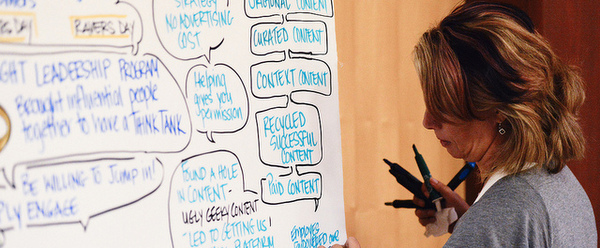 RS DAY
PLAYERS DAY
STRATEGY
NO ADVERTISING
COST
GHT LEADERSHIP PROGRAM
Brought influential people
together to have a THINK TANK
Helping
gives you
permission
BE WILLING TO JUMP IN!
PLY ENGAGE
FOUND A HOLE
IN CONTENT -
UGLY GEEKY CONTENT
"LED TO GETTING US"
ORIGINAL CONTENT
CURATED CONTENT
CONTEXT CONTENT
RECYCLED
SUCCESSFUL
CONTENT
PAID CONTENT